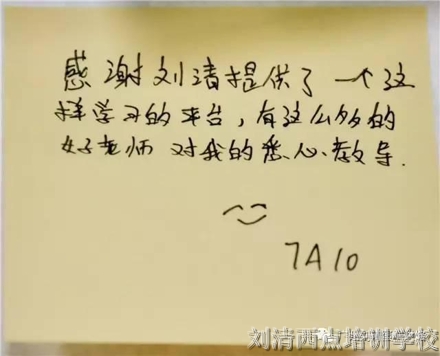 感谢刘清提供了一个这
样学习的平台，有这么多的
好老师 对我的悉心教导.
7A10
刘清西点培训学校